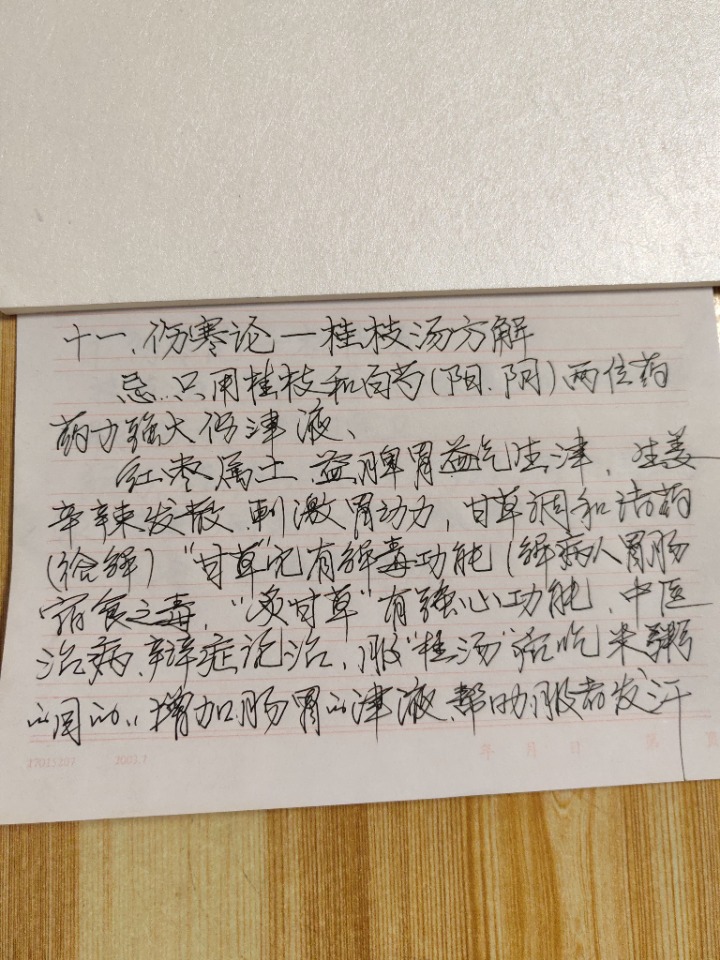 十一、伤寒论一桂枝汤方解
忌.只用桂枝和白芍(阳.阴)两位药
药力强大伤津液、
红枣属土 益脾胃益气生津，生姜
辛辣发散 刺激胃动力，甘草调和诸药
(给解) "甘草"它有解毒功能(解病人胃肠
宿食之毒，"炙甘草"有强心功能、中医
治病、辩症论治、服"桂汤"后吃米粥
的目的，增加肠胃的津液、帮助服者发汗
27015207 2003.1 年 月 日 第 页